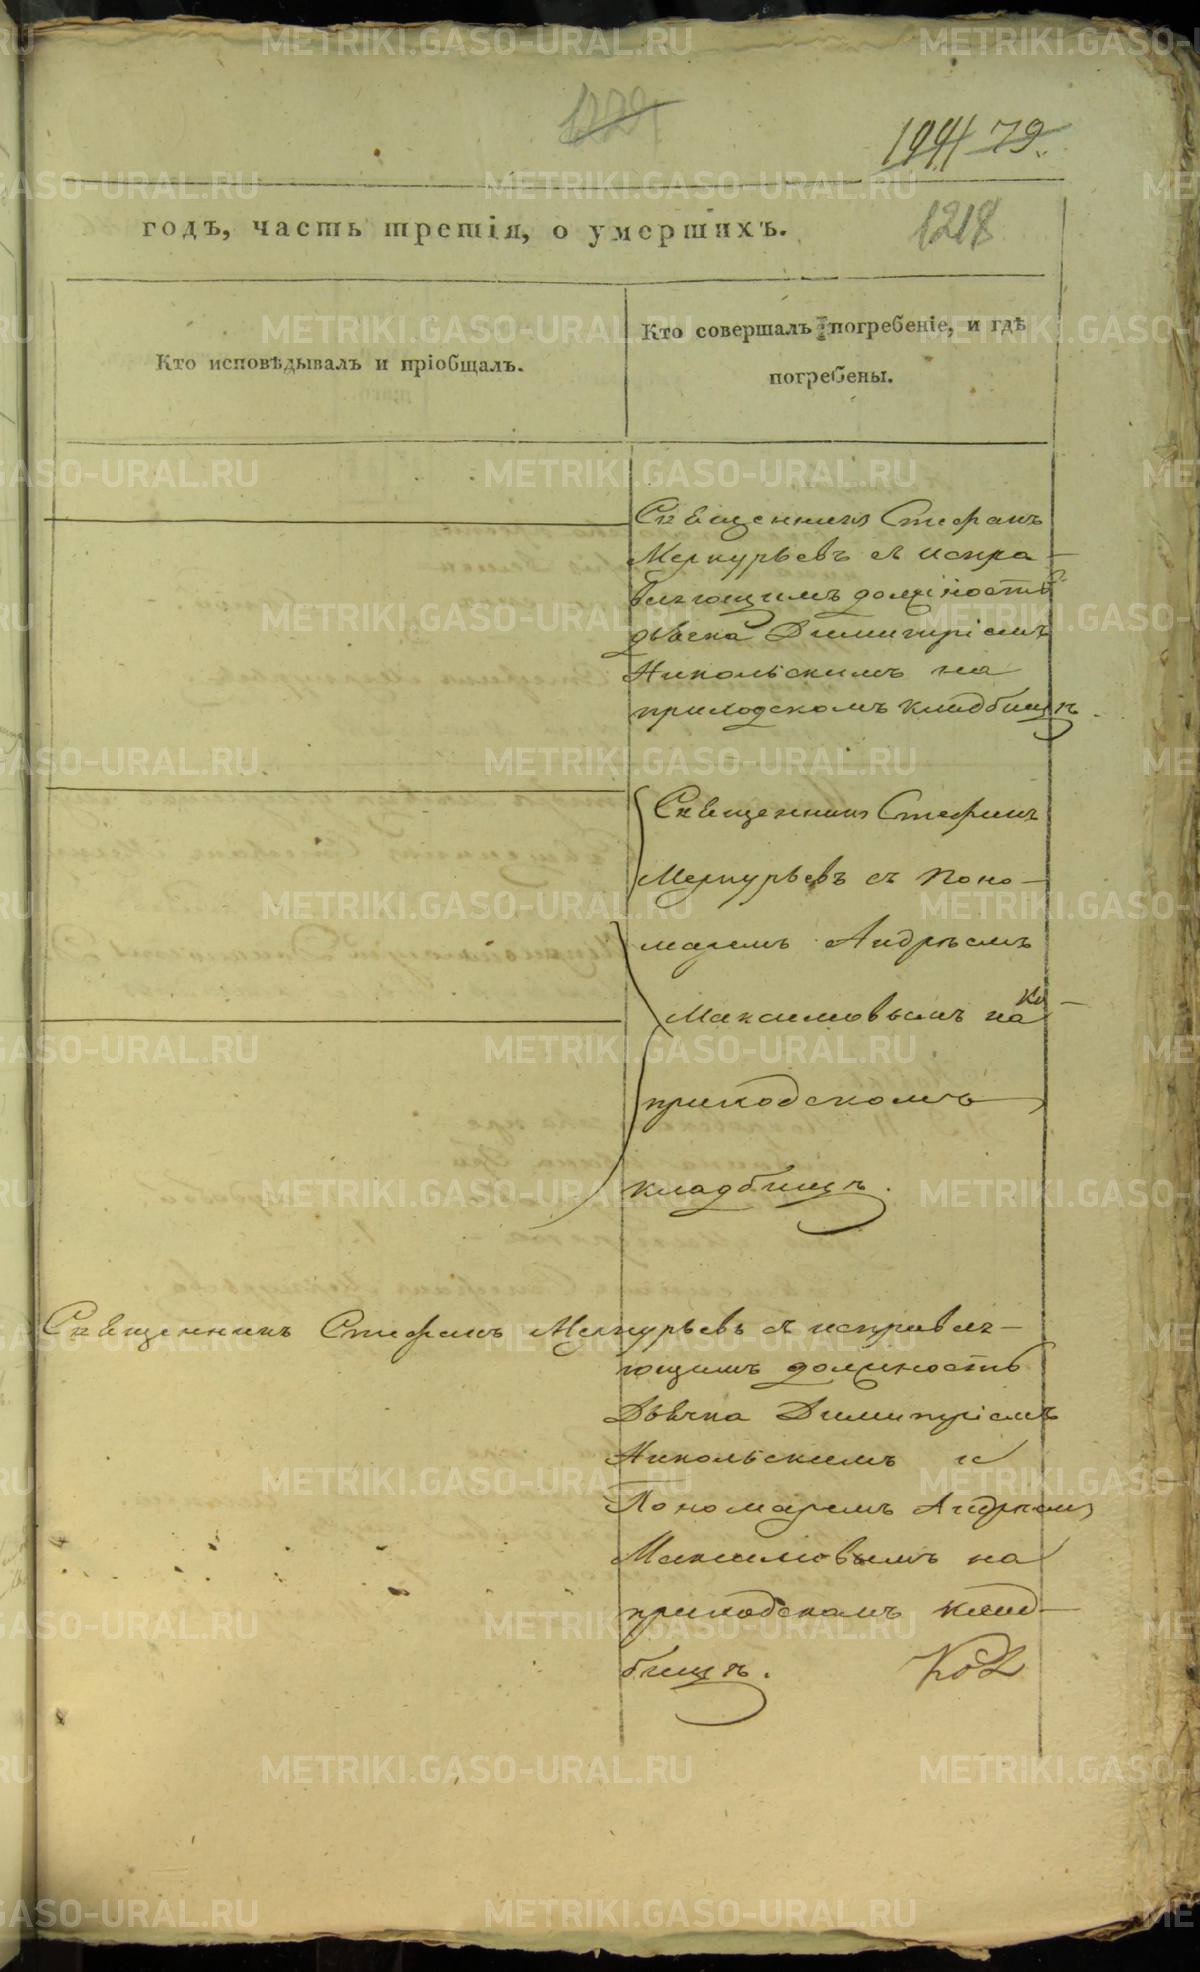 1221
1991 79.
1218
годъ, часть третія, о умершихъ.
Кто исповѣдывалъ и пріобщалъ.
Кто совершалъ погребеніе, и гдѣ
погребены.
Священникъ Стефанъ
Меркурьевъ съ испра-
вляющимъ должность
дьячка Димитріемъ
Никольскимъ на
приходскомъ кладбищѣ.
Священникъ Стефанъ
Меркурьевъ съ поно-
маремъ Андрѣемъ
Максимовымъ на
приходскомъ
кладбищѣ.
Священникъ Стефанъ Меркурьевъ съ исправля-
ющимъ должность
Дьячка Димитріемъ
Никольскимъ и
Пономаремъ Андрѣемъ
Максимовымъ на
приходскомъ клад-
бищѣ.
METRIKI.GASO-URAL.RU